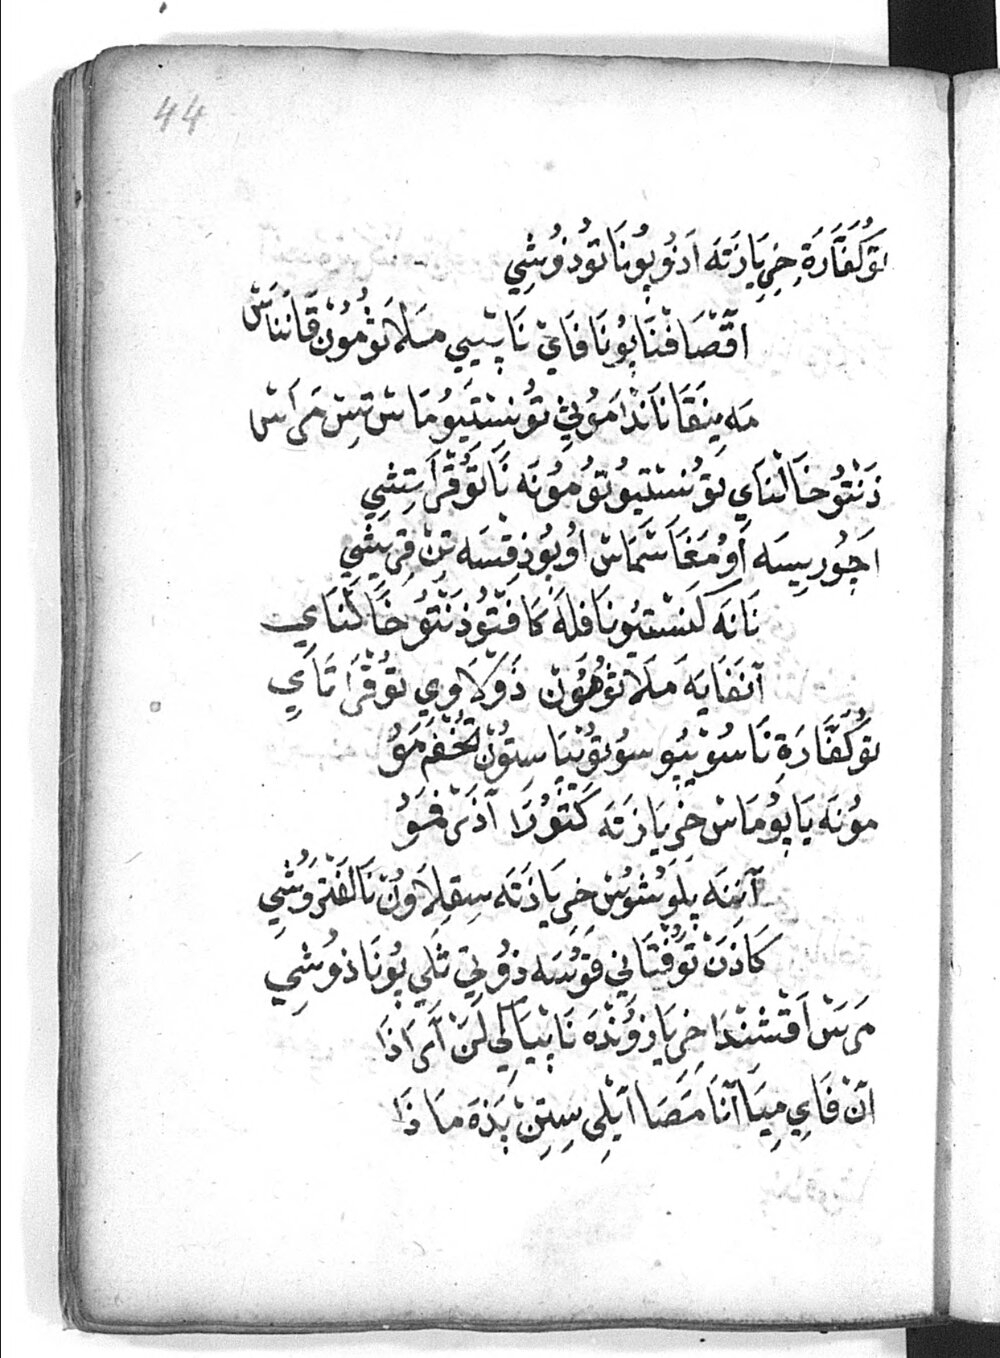 44
تُو كَفَّارَةِ خِرِيَازَتَه اَذُو پُونَا تُوذُوشِي
اَقْصَافْنَا پُونَا فَايْ نَا پِيِي مَلَا تُوْمُونْ قَانَنَاسْ
مَه پِنَقَانَا نَدَامُوثِ تُونِسْتِيُو مَاسْ تِسْ مَرَاسْ
ذَنْتُو خَالْنَاي تُونِسْتِيُو تُومُونَه نَا تُوقْرَاتِشِي
اَجُورِيسَه اَوُ مَغَاشْمَاسْ اوُ بُوذِقِسَه تِنْ قِرِيشِي
نَانَه كَنِسْتِيُو نَافِلَه كَافْتُو ذَنْتُو خَالَنَاي
آنَفَايَه مَلَا تُوهُونْ ذَوَكَلَاوِي تُوقْرَاتَايِ
تُو كَفَّارَةِ نَا سُوْپِيُو سُوتُوْپِيَاسِتُونْ تُخْفَمَوُ
مُونَه يَا پُومَاسْ خْرِيَازَتَه كَتْتُورَا آذَرْفَمَوُ
آنِنَه پِلَوُشُوسْ خِرِيَازَتَه سِقِلَاوُنْ نَا لَفْتَرُوشِي
كَاذَنْ تُوفْتَانِي قُوسَه ذُولِي ثَلِي پُونَا ذُوشِي
مَرَسْ اَقْشَنْدَا خِرِيَازُونْدَه نَا پِيَالِي لَنْ آرَاذَا
آنْ فَايِ مِيَا آنَا مَصَا آيْلِي سِتِنْ پَذَه مَاذَا